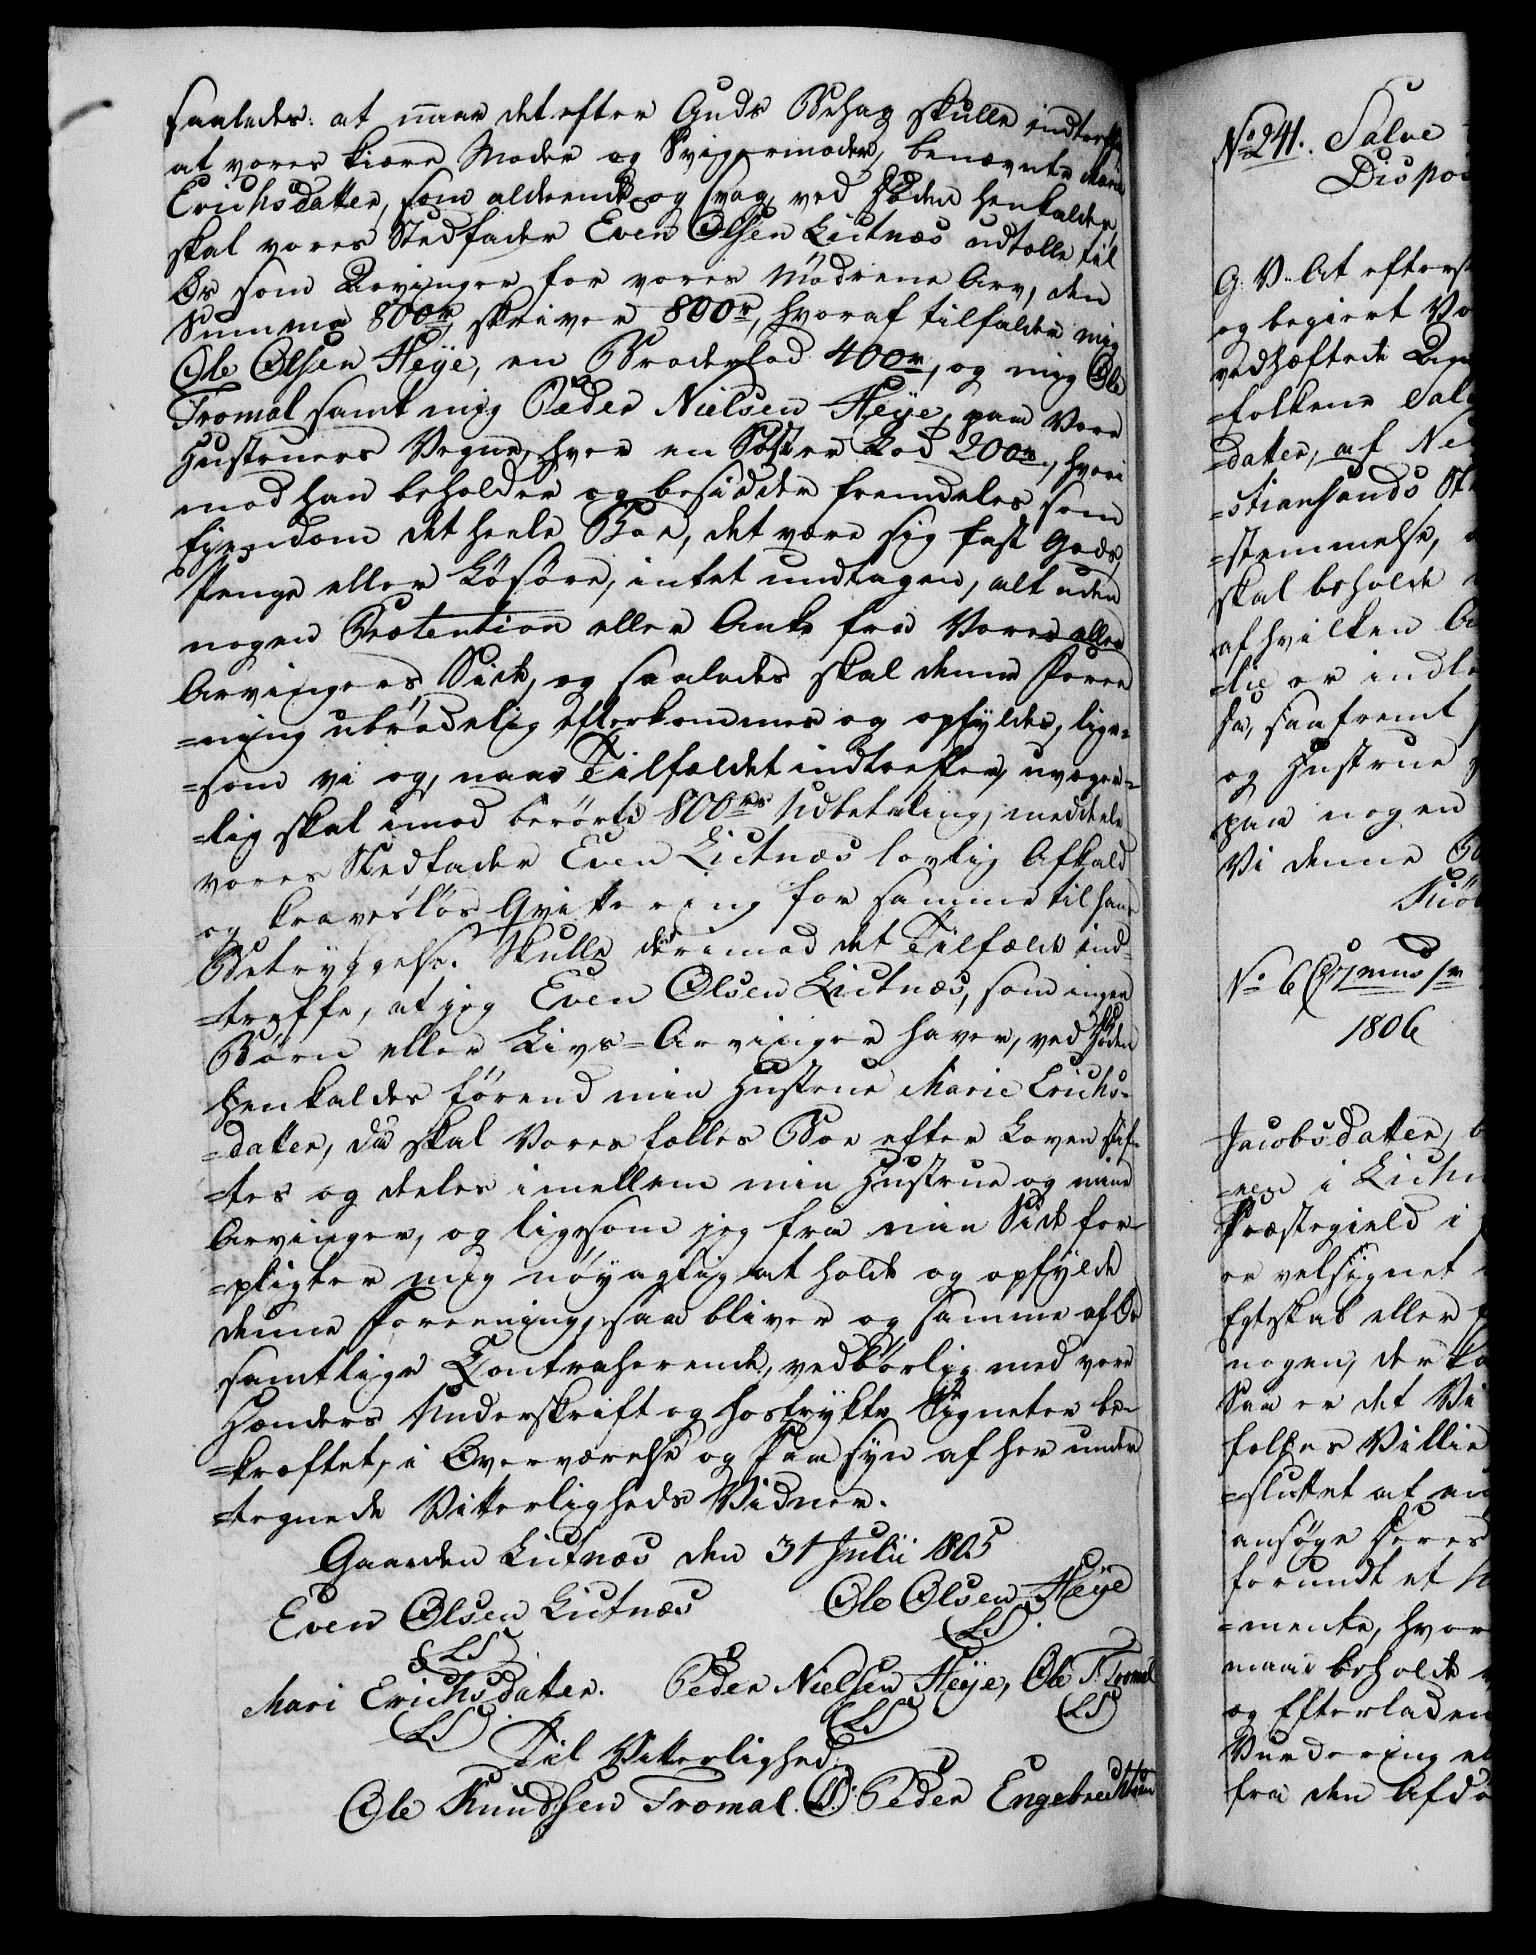 saaledes: at naar det efter Guds Behag skulle indtreffe
at vores kiære Moder og Svigermoder, benævnte Marie
Erichsdatter, som aldrende og svag, ved Døden henkaldes,
skal vores Stedfader Even Olsen Lutnæs udtælle til
Os som Arvinger for vores Mødrene Arv, den
Summa 800 rd, skriver 800 rd, hvoraf tilfalder mig
Ole Olsen Heÿe, en Broderlod 400 rd, og mig Ole
Tromal samt mig Peder Nielsen Heÿe, paa Vore
Hustruers Vegne, hver en Søster Lod 200 rd., hvori-
mod han beholder og besidder fremdeles som
Ejendom det heele Boe, det være sig fast Gods,
Penge eller Løsøre, intet undtagen, alt uden
nogen Prætention eller Anke fra Vores eller
Arvingers Side, og saaledes skal denne Foree-
=ning ubrødelig efterkommes og opfyldes, lige=
=som vi og, naar Tilfældet indtreffer, uvæger=
=lig skal imod berørte 800 rd Udbetaling, meddele
vores Stedfader Even Lutnæs lovlig Afkald
og kravesløs Qvittering for samme til hans
Betryggelse. Skulle derimod det Tilfælde ind=
=treffe, at jeg Even Olsen Lutnæs, som ingen
Børn eller Livs=Arvinger haver, ved Døden
henkaldes førend min Hustrue Marie Erichs=
=datter, da skal Vores fælles Boe efter Loven skif-
=tes og deeles imellem min Hustrue og mine
Arvinger, og ligesom jeg fra min Side for-
=pligter mig nøyagtig at holde og opfylde
denne Foreening, saa bliver og samme af Os
samtlige Contraherende, vedbørlig med vore
Hænders Underskrift og hostrykte Signeter be-
=kræftet, i Overværelse og Paasyn af her under
=tegnede Vitterligheds Vidner.
Gaarden Lutnæs den 31 Julii 1805
Even Olsen Lutnæs Ole Olsen Heÿe
(LS) (LS).
Mari Erichsdatter. Peder Nielsen Heÿe, Ole T. Tromal
(LS) (LS) (LS)
Til Vitterlighed:
Ole Knudssen Tromal. (LS). Peder Engebrechtsen
No 241. Salve
Dispos
G: V: At efters
og begiert Vo
vedhæftede
=folkene Sal
=datter, af Ne
=stiansands St
=stemmelse,
skal beholde
af hvilken A
=lie er indle
Ja, saafremt
og Hustrue
paa nogen
Vi denne B
Kiøb
No 6
1806
Jacobsdatter, b
=nem i Lichn
Præstegield i
er velsignet
Egteskab eller
nogen, der ka
Saa er det Vi
folkes Villie
=sluttet at an
ansøge Deres
forundt et
=mente, hvor
maae beholde
og Efterladen
Vurdering el
fra den Afdø